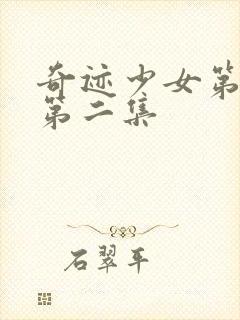 奇迹少女第
第二集
石翠平